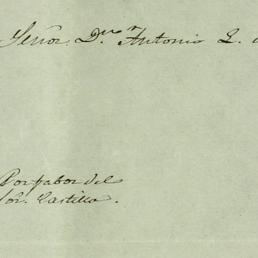 Señor Dn Antonio L.
Por fabor del
Sor. Castillo.